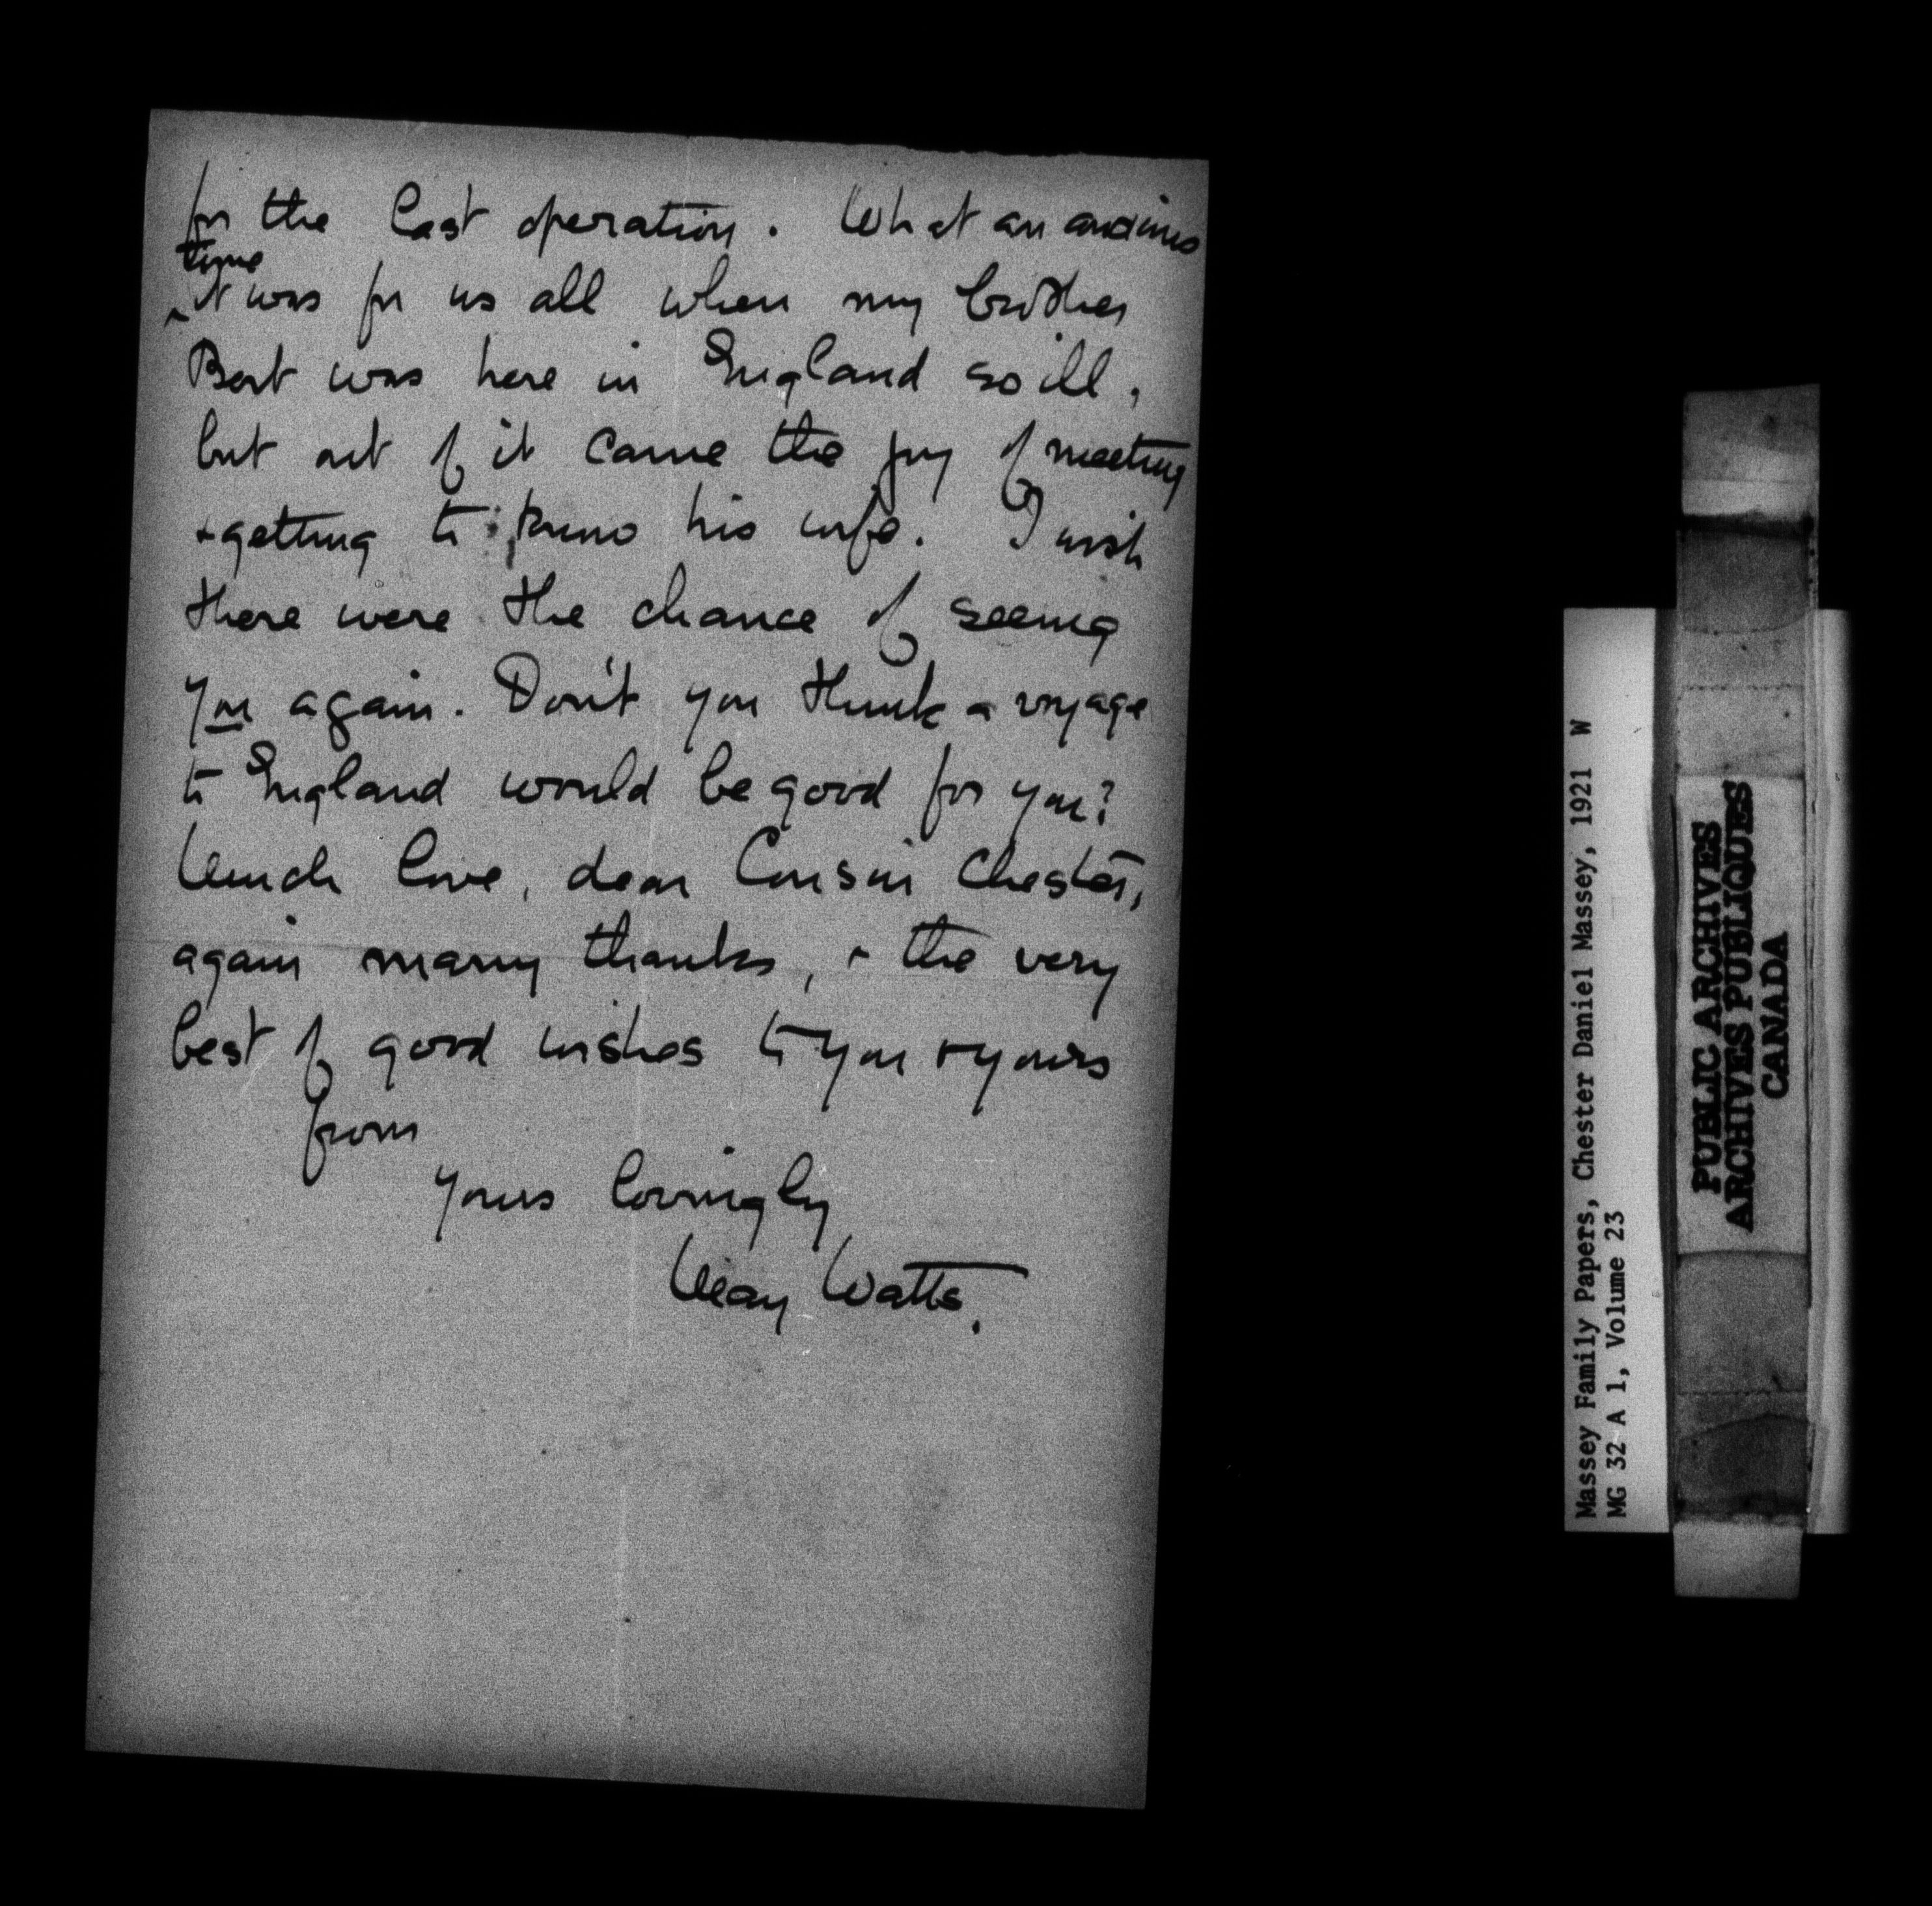 for the last operation. What an anxious
time
^it was for us all when my brother
Bert was here in England so ill,
but out of it came the joy of meeting
+ getting to know his wife. I wish
there were the chance of seeing
you again. Don't you think a voyage
to England would be good for you?
Much love, dear Cousin Chester,
again many thanks, + the very
best of good wishes to you + yours
from
Yours lovingly
May Watts.
Massey Family Papers, Chester Daniel Massey, 1921 W
MG 32 A 1, Volume 23
PUBLIC ARCHIVES
ARCHIVES PUBLIQUES
CANADA